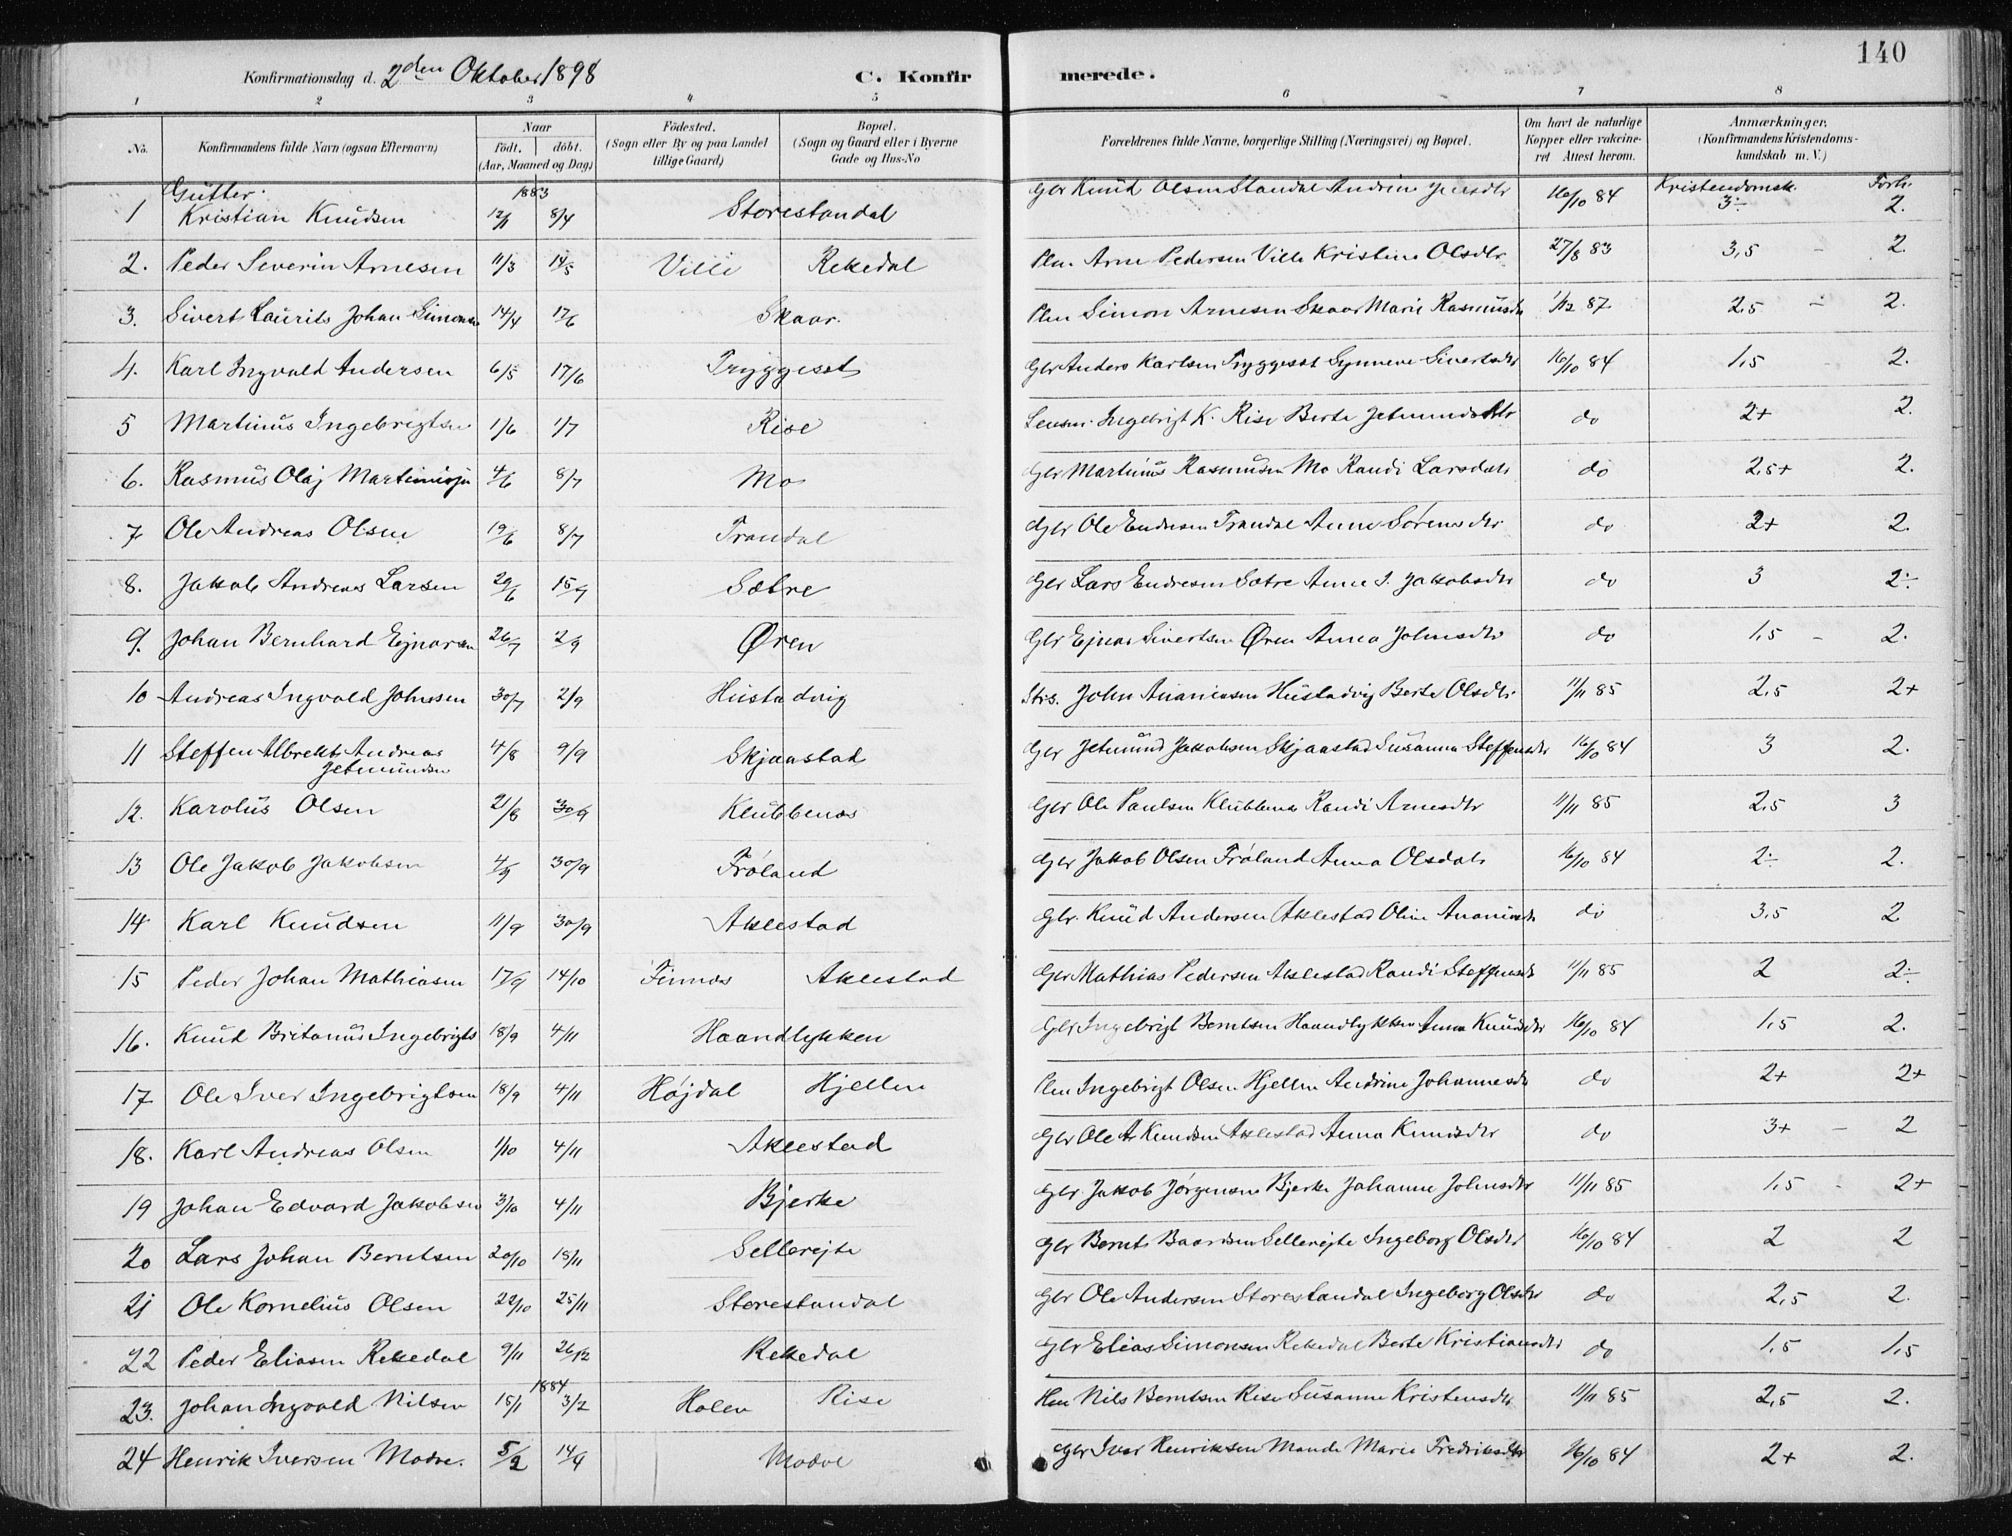 140
Konfirmationsdag d. 2den Oktober 1898 C. Konfirmerede.
1 2 3 4 5 6 7 8
No. Konfirmandens fulde Navn (ogsaa Efternavn) Naar født. døbt. (Aar, Maaned og Dag) Fødested. (Sogn eller By og paa Landet tillige Gaard) Bopæl. (Sogn og Gaard eller i Byerne Gade og Hus-No Forældrenes fulde Navne, borgerlige Stilling (Næringsvei) og Bopæl. Om havt de naturlige Kopper eller vakcineret Attest herom. Anmærkninger. (Konfirmandens Kristendomskundskab m. V.)
Gutter. 1883 Kristendomsk. Forh.
1 Kristian Knudsen 12/1 8/4 Storestandal Gbr Knud Olsen Standal Andrine Jensdtr 16/10 84 3÷ 2.
2. Peder Severin Arnesen 11/3 14/5 Ville Rekedal Plm. Arne Pedersen Ville Kristine Olsdtr 27/8 83 3,5 – 2.
3. Sivert Laurits Johan Simonsen 14/4 17/6 Skaar. Plm Simon Arnesen Skaar Marie Rasmusdtr 1/12 87. 2,5 – 2.
4. Karl Ingvald Andersen 6/5 17/6 Tryggeset Gbr Anders Karlsen Tryggeset Synneve Sivertsdtr 16/10 84 1,5 – 2.
5 Martinus Ingebrigtsen 1/6 1/7 Rise Lensm. Ingebrigt K. Rise Berte Jetmundsdtr do 2+ 2.
6. Rasmus Olaj Martinusen 4/6 8/7 Mo Gbr Martinus Rasmusen Mo Randi Larsdatr do 2,5+ 2.
7 Ole Andreas Olsen 19/6 8/7 Trandal Gbr Ole Endresen Trandal Anne Sørensdtr do 2+ 2.
8. Jakob Andreas Larsen 29/6 15/7 Sætre Gbr Lars Endresen Sætre Anne S. Jakobsdtr do 3 2÷
9. Johan Bernhard Ejnarsen 26/7 2/9 Øren Gbr Ejnar Sivertsen Øren Anna Johnsdtr do 1,5 – 2.
10 Andreas Ingvald Johnsen 30/7 2/9 Hustadvig Strs. John Ananiasen Hustadvig Berte Olsdtr 11/11 85 2,5 2+
11 Steffen Albrekt Andreas Jetmundsen 4/8 9/9 Skjaastad Gbr Jetmund Jakobsen Skjaastad Susanna Steffensdtr 16/10 84 3 2.
12. Karolus Olsen 21/8 30/9 Klubbenes Gbr Ole Paulsen Klubbenes Randi Arnesdtr 11/11 85 2,5 3
13 Ole Jakob Jakobsen 4/9 30/9 Frøland Gbr Jakob Olsen Frøland Anna Olsdatr 16/10 84 2÷ 2.
14 Karl Knudsen 11/9 30/9 Aklestad Gbr. Knud Andersen Aklestad Oline Ananiasdtr do 3,5 2
15 Peder Johan Mathiasen 17/9 14/10 Finnes Aklestad Gbr Mathias Pedersen Aklestad Randi Steffensdtr 11/11 85 2 2÷
16. Knud Britanus Ingebrigts 18/9 4/11 Haandlykken Gbr Ingebrigt Berntsen Haandlykken Anna Knudsdtr 16/10 84 1,5 2.
17 Ole Iver Ingebrigtsen 18/9 4/11 Højdal Hjellen Plm Ingebrigt Olsen Hjellen Andrine Johannesdtr do 2+ 2+
18. Karl Andreas Olsen 1/10 4/11 Aklestad Gbr Ole A Knudsen Aklestad Anna Knudsdtr do 3+ – 2
19 Johan Edvard Jakobsen 3/10 4/11 Bjerke Gbr Jakob Jørgensen Bjerke Johanne Johnsdtr 11/11 85 1,5 – 2+
20 Lars Johan Berntsen 20/10 18/11 Sellerejte Gbr Bernt Baardsen Sellerejte Ingeborg Olsdtr 16/10 84 2 2
21 Ole Kornelius Olsen 22/10 25/11 Storestandal Gbr Ole Andersen Storestandal Ingeborg Olsdtr do 2,5 2.
22 Peder Eliasen Rekedal 9/11 26/12 Rekedal Gbr Elias Simonsen Rekedal Berte Kristiansdtr do 1,5 1,5
1884
23. Johan Ingvald Nilsen 15/1 3/2 Holen Rise Hm Nils Berntsen Rise Susanne Kristensdtr 11/11 85 2,5 2.
24 Henrik Iversen Modve. 5/2 14/4 Modve Gbr Iver Henriksen Mande Marie Fredriksdtr 16/10 84 2+ 2.